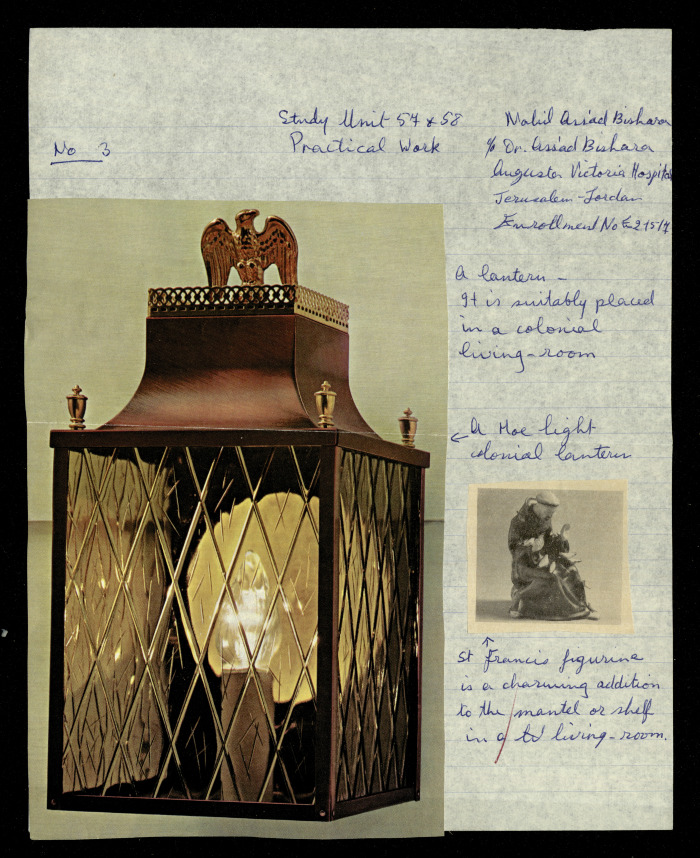 No 3
Study Unit 57 & 58
Practical Work
Nabil Ass'ad Bishara
c/o Dr. Ass'ad Bishara
Augusta Victoria Hospital
Jerusalem-Jordan
Enrollment No
A lantern -
It is suitably placed
in a colonial
living-room
← A Moe light
colonial lantern
↑
St Francis figurine
is a charming addition
to the mantel or shelf
in a living-room.